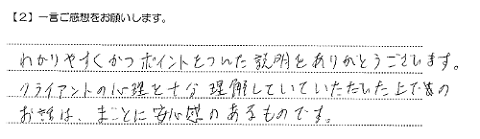 【2】一言ご感想をお願いします。
わかりやすくかつポイントをつんた説明をありがとうございます。
クライアントの心理を十分理解していていたたいた上での
おき は、まことに安心感のあるものです。